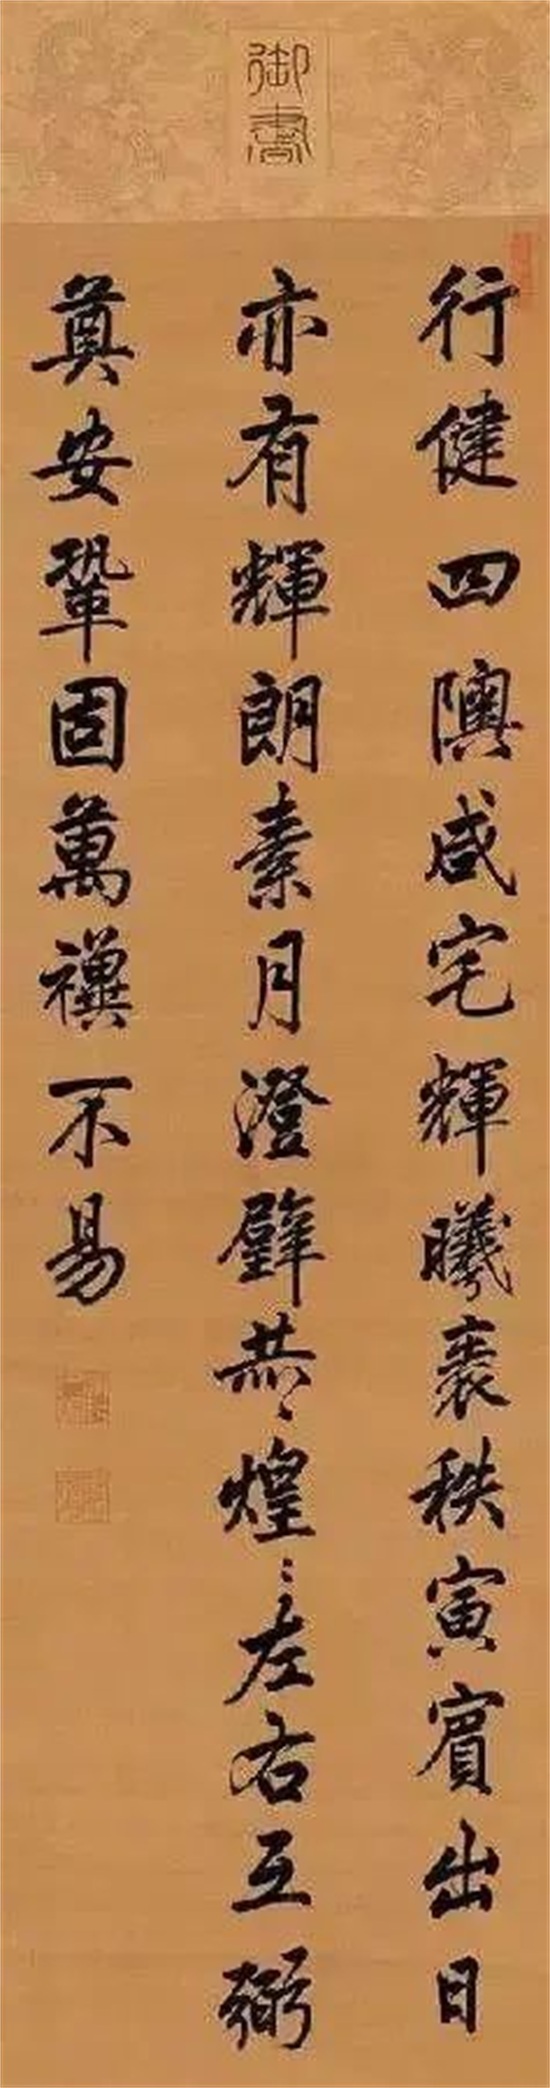 御書
行健四隩咸宅輝曦裘秩寅賓出日
亦有輝朗素月澄璧共〻煌〻左右互弼
奠安鞏固萬禩不易